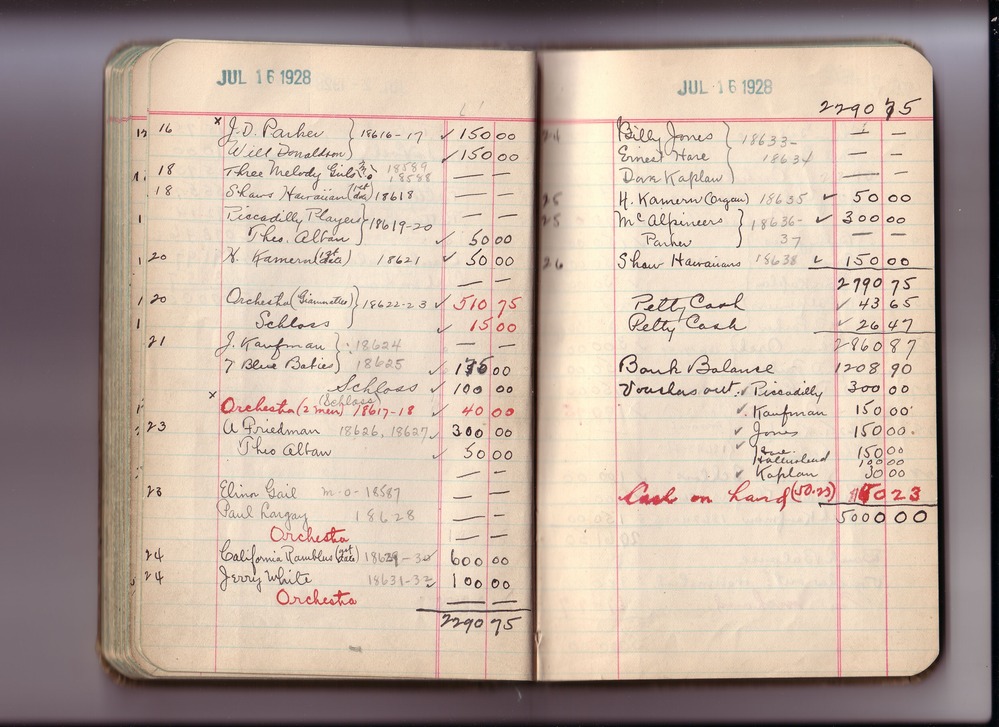 JUL 16 1928
16 x J. D. Parker } 18616-17 ✓ 150 00
Will Donaldson ✓ 150 00
18 Three Melody Girls 18589 18588 — —
18 Shaws Hawaiian (1st date) 18618 — —
Piccadilly Players } 18619-20 — —
Theo. Alban ✓ 50 00
20 H. Kamern (1st date) 18621 ✓ 50 00
— —
20 Orchestra (Giannatti) } 18622-23 ✓ 510 75
Schloss ✓ 15 00
21 J. Kaufman } 18624 — —
7 Blue Babies 18625 ✓ 175 00
Schloss ✓ 100 00
(Schloss)
x Orchestra (2 men) 18617-18 ✓ 40 00
23 A Friedman 18626, 18627 ✓ 300 00
Theo Alban ✓ 50 00
— —
23 Elinor Gail m-o-18587 — —
Paul Largay 18628 — —
Orchestra — —
24 California Ramblers (1st date) 18629-30 ✓ 600 00
24 Jerry White 18631-32 ✓ 100 00
Orchestra — —
2290 75
JUL 16 1928
2290 75
24 Billy Jones } 18633- — —
Ernest Hare 18634 — —
Dave Kaplan — —
25 H. Kamern (Organ) 18635 ✓ 50 00
25 McAlpineers } 18636- ✓ 300 00
Parker 37 — —
26 Shaw Hawaiians 18638 ✓ 150 00
2790 75
Petty Cash ✓ 43 65
Petty Cash ✓ 26 47
2860 87
Bank Balance 1208 90
Vouchers out: ✓ Piccadilly 300 00
✓ Kaufman 150 00
✓ Jones 150 00
✓ Hare 150 00
Halterstead 100 00
✓ Kaplan 30 00
Cash on hand (50.23) 50 23
5000 00